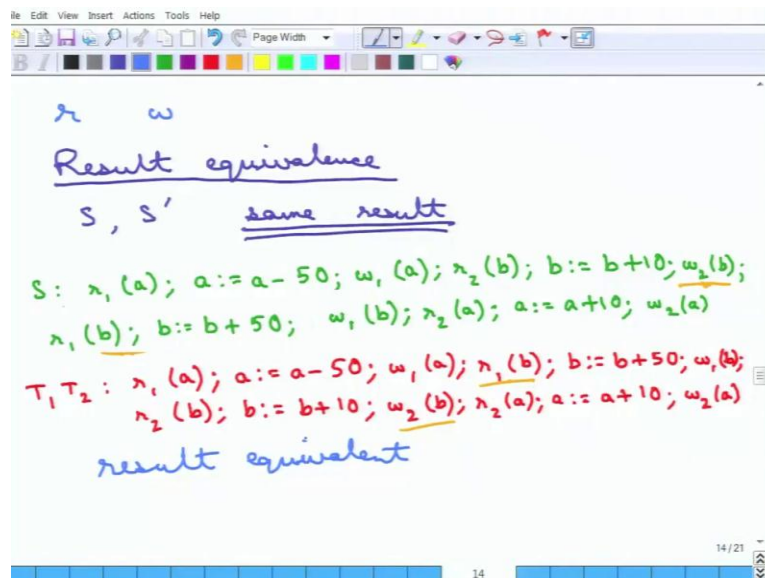 ile Edit View Insert Actions Tools Help
Page Width
B I
r w
Result equivalence
S, S' same result
S: r₁(a); a:=a-50; w₁(a); r₂(b); b:=b+10; w₂(b);
r₁(b); b:=b+50; w₁(b); r₂(a); a:=a+10; w₂(a)
T₁T₂: r₁(a); a:=a-50; w₁(a); r₁(b); b:=b+50; w₁(b);
r₂(b); b:=b+10; w₂(b); r₂(a); a:=a+10; w₂(a)
result equivalent
14/21
14